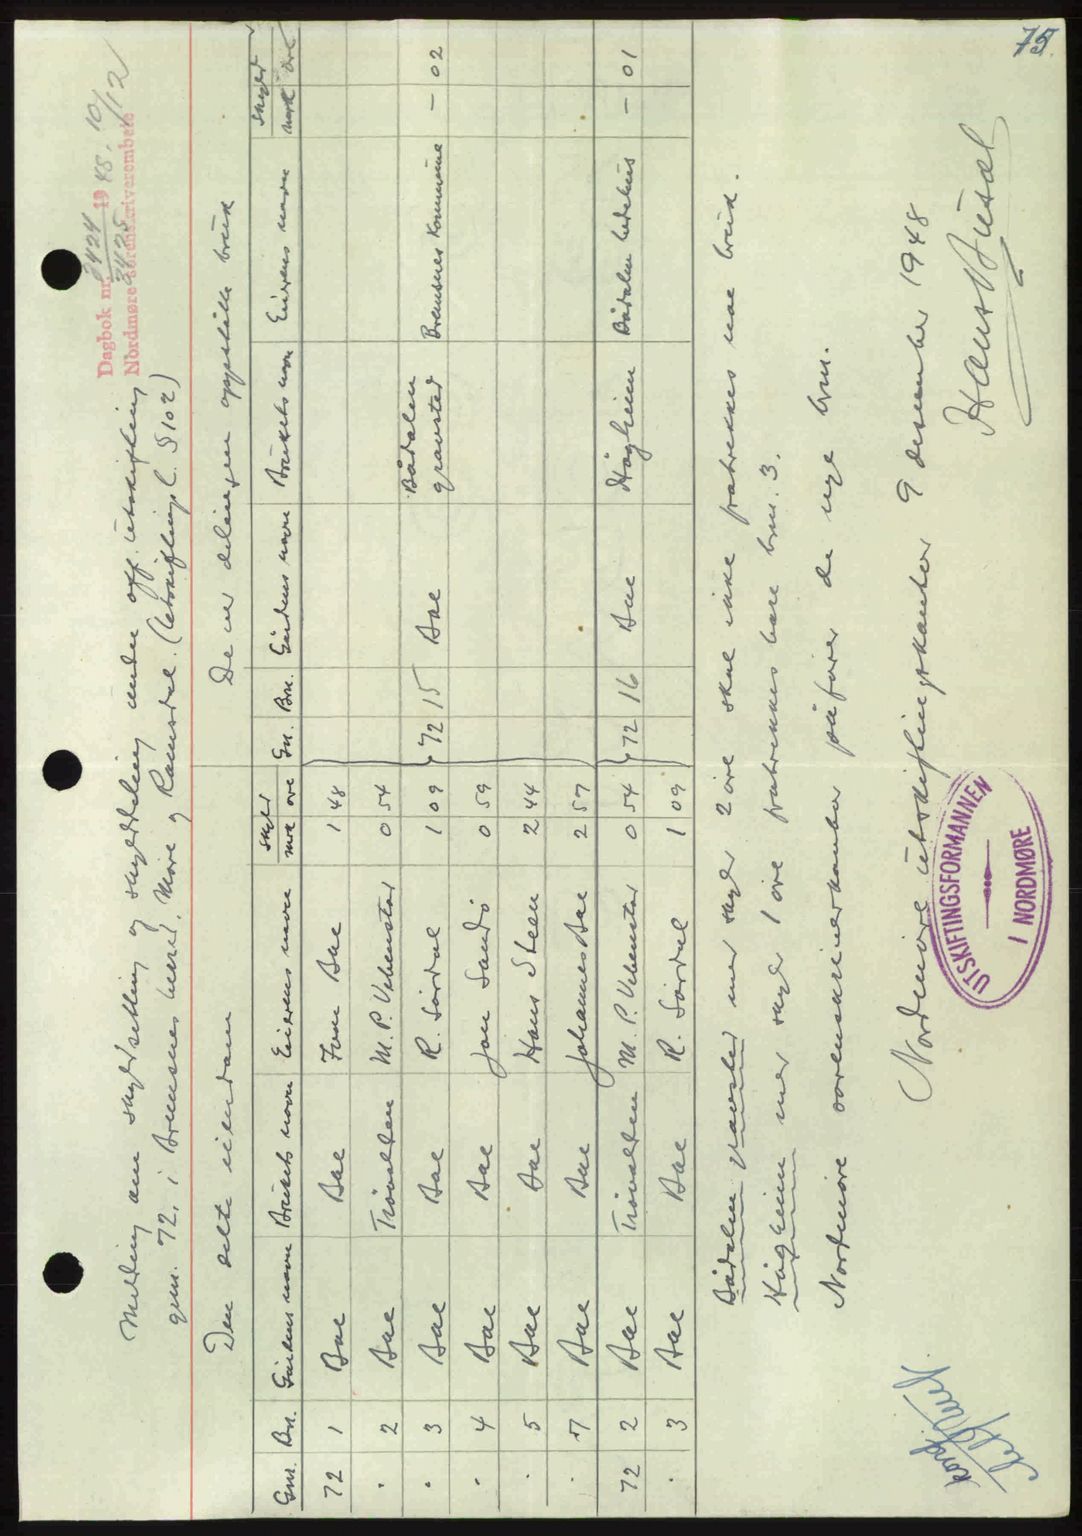 Dagbok nr. 2424 1948. 10/12
2425
Nordmøre sorenskriverembete
Melding om skyldsetting og skylddeling under off. utskifting
gnr. 72, i Bremsnes herred, Møre og Romsdal. (Utskiftingsl. § 102)
Den delte eiendom
De ved delingen oppståtte bruk
Gnr. Bnr. Gårdens navn Brukets navn Eierens navn Skyld mrk øre Gnr. Bnr. Gårdens navn Brukets navn Eierens navn Skyld mrk øre
72 1 Bae Bae Tom Bae 1 48
" 2 Bae M. P. Vebenstad 0 54
" 3 Bae Bae R. Sørdal 1 09 72 15 Bae Bådalen gravsted Bremsnes Kommune – 02
" 4 Bae Bae Jon Sandø 0 59
" 5 Bae Bae Hans Steen 2 44
" 7 Bae Bae Johannes Bae 2 57
72 2 Bae M. P. Vebenstad 0 54 72 16 Bae Hågheim Bådalen bedehus – 01
" 3 Bae Bae R. Sørdal 1 09
Bådalen gravsted med skyld 2 øre skal ikke fratrekkes noe bruk.
Hågheim med skyld 1 øre fratrekkes bare bnr. 3.
Nordmøre sorenskriverkontor påfører de nye bnr.
Nordmøre utskiftingskontor 9 desember 1948
UTSKIFTINGSFORMANNEN
I NORDMØRE
75